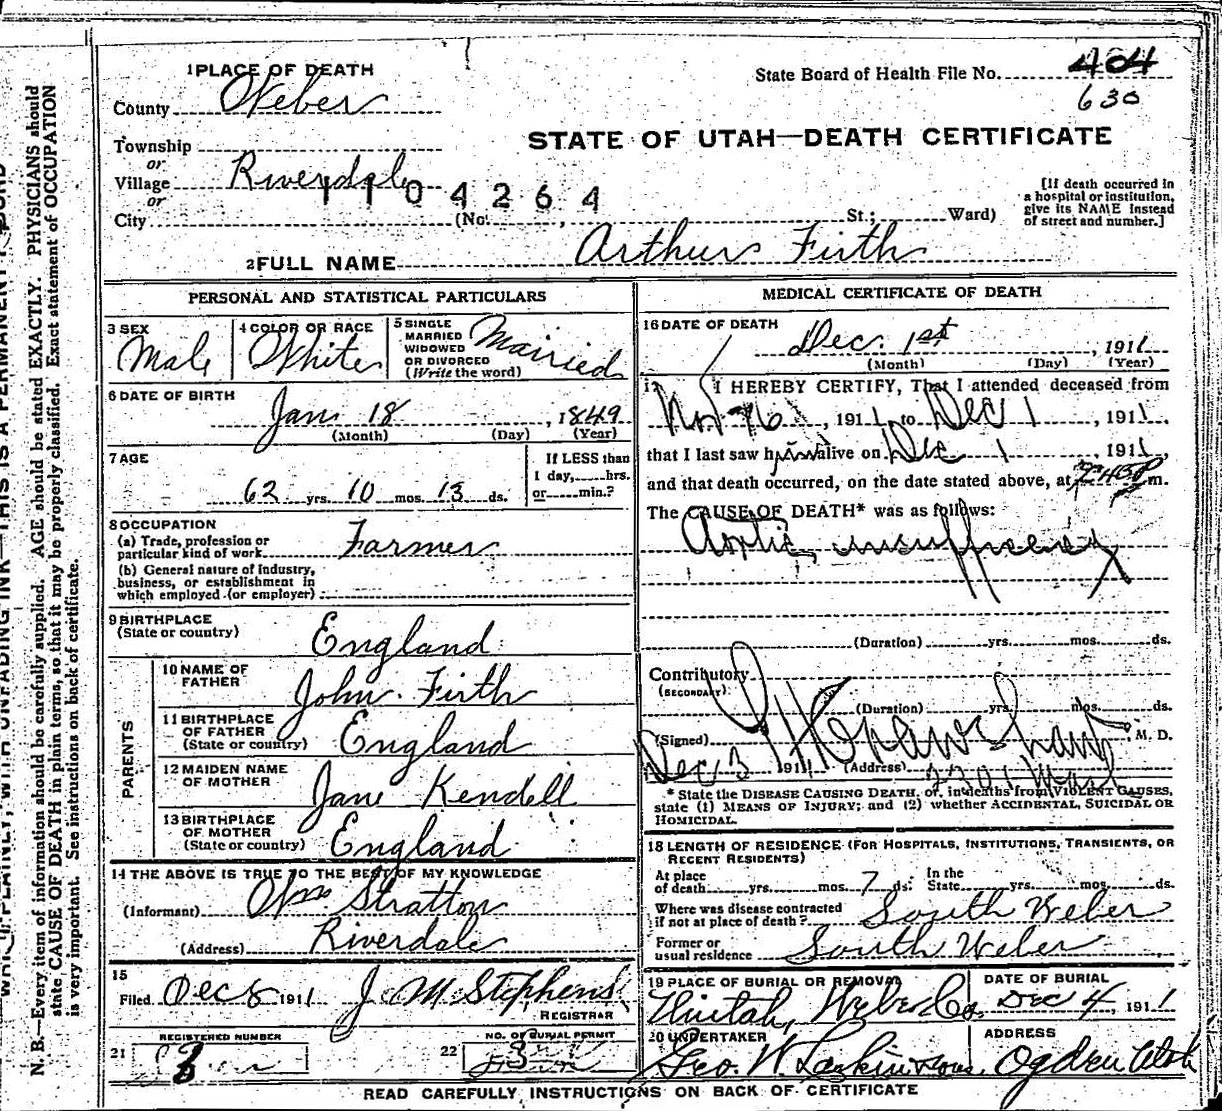 1 PLACE OF DEATH
County Weber
State Board of Health File No. 404
630
STATE OF UTAH—DEATH CERTIFICATE
Township
or
Village Riverdale
or
1104264
City (No. , St.; Ward)
[If death occurred in
a hospital or institution,
give its NAME instead
of street and number.]
2 FULL NAME Arthur Firth
PERSONAL AND STATISTICAL PARTICULARS
3 SEX
Male
4 COLOR OR RACE
White
5 SINGLE
MARRIED
WIDOWED
OR DIVORCED
(Write the word)
Married
6 DATE OF BIRTH
Jan 18, 1849
(Month) (Day) (Year)
7 AGE
62 yrs. 10 mos. 13 ds.
If LESS than
1 day, hrs.
or min.?
8 OCCUPATION
(a) Trade, profession or
particular kind of work Farmer
(b) General nature of industry,
business, or establishment in
which employed (or employer)
9 BIRTHPLACE
(State or country) England
PARENTS
10 NAME OF
FATHER John Firth
11 BIRTHPLACE
OF FATHER
(State or country) England
12 MAIDEN NAME
OF MOTHER Jane Kendell
13 BIRTHPLACE
OF MOTHER
(State or country) England
14 THE ABOVE IS TRUE TO THE BEST OF MY KNOWLEDGE
(Informant) Wm Stratton
(Address) Riverdale
15
Filed Dec 8 1911 J. M. Stephens
REGISTRAR
REGISTERED NUMBER
21
NO. OF BURIAL PERMIT
22 3
MEDICAL CERTIFICATE OF DEATH
16 DATE OF DEATH
Dec. 1st, 1911
(Month) (Day) (Year)
17 I HEREBY CERTIFY, That I attended deceased from
Nov 26, 1911 to Dec 1, 1911,
that I last saw him alive on Dec 1, 1911,
and that death occurred, on the date stated above, at m.
The CAUSE OF DEATH* was as follows:
Aortic insufficiency
(Duration) yrs. mos. ds.
Contributory
(SECONDARY)
(Duration) yrs. mos. ds.
(Signed) M. D.
Dec 3 1911 (Address) Wash
* State the DISEASE CAUSING DEATH, or, in deaths from VIOLENT CAUSES,
state (1) MEANS OF INJURY; and (2) whether ACCIDENTAL, SUICIDAL OR
HOMICIDAL.
18 LENGTH OF RESIDENCE (FOR HOSPITALS, INSTITUTIONS, TRANSIENTS, OR
RECENT RESIDENTS)
At place
of death yrs. mos. 7 ds. In the
State yrs. mos. ds.
Where was disease contracted
if not at place of death? South Weber
Former or
usual residence South Weber
19 PLACE OF BURIAL OR REMOVAL
Uintah, Weber Co.
DATE OF BURIAL
Dec 4, 1911
20 UNDERTAKER
Geo. W. Larkin & Sons,
ADDRESS
Ogden Utah
READ CAREFULLY INSTRUCTIONS ON BACK OF CERTIFICATE
N. B.—Every item of information should be carefully supplied. AGE should be stated EXACTLY. PHYSICIANS should
state CAUSE OF DEATH in plain terms, so that it may be properly classified. Exact statement of OCCUPATION
is very important. See instructions on back of certificate.